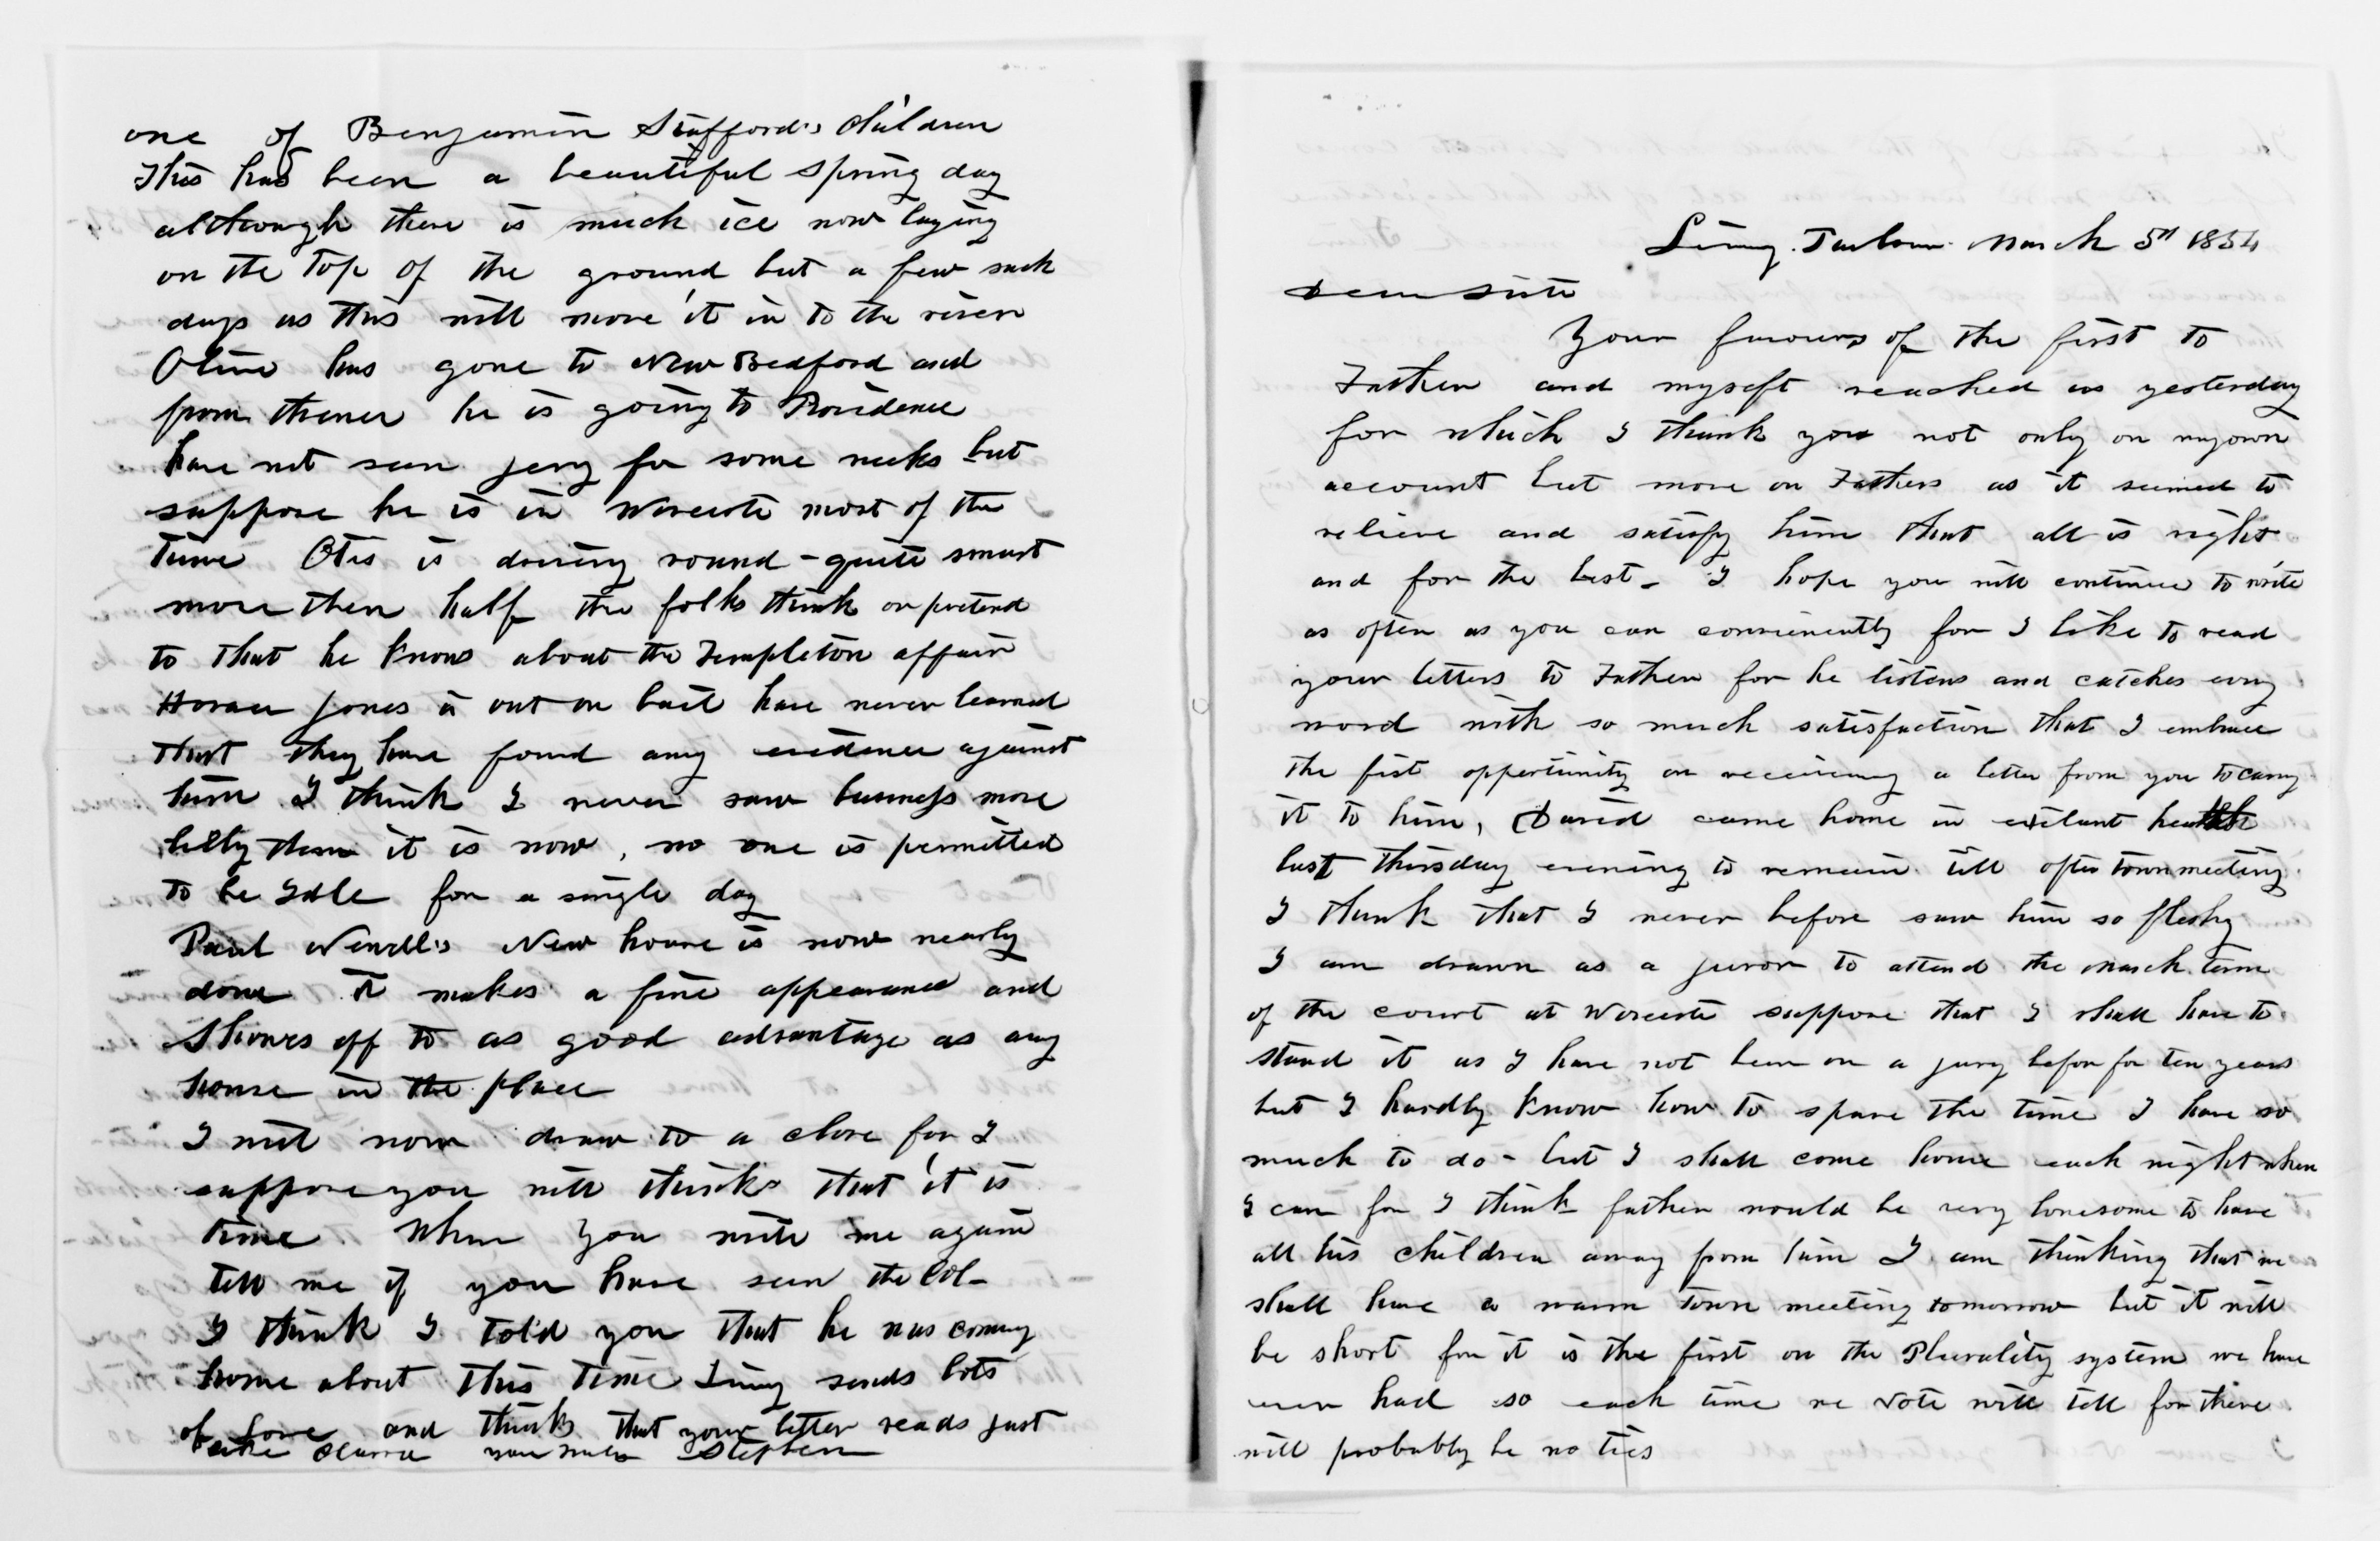 one of Benjamin Stafford's children
This has been a beautiful spring day
although there is much ice now laying
on the top of the ground but a few such
days as this will move it in to the river
has gone to New Bedford and
from thence he is going to Providence
have not seen jery for some weeks but
suppose he is in Worcester most of the
time Otis is driving round - quite smart
more then half the folks think or pretend
to that he knows about the Templeton affair
Horace Jones is out on bail have never learned
that they have found any evidence against
him I think I never saw business more
then it is now, no one is permitted
to be Idle for a single day
Paul Newell's New house is now nearly
done It makes a fine appearance and
Shows off to as good advantage as any
house in the place
I will now draw to a close for I
suppose you will think that it is
time. When you write me again
tell me if you have seen the Col-
I think I told you that he was coming
home about this time sends lots
of love and thinks that your letter reads just
like Clara Stephen
March 5th 1854
Dear Sister
Your favours of the first to
Father and myself reached us yesterday
for which I thank you not only on my own
account but more on Fathers as it seemed to
relieve and satisfy him that all is right
and for the best - I hope you will continue to write
as often as you can conveniently for I like to read
your letters to Father for he listens and catches evry
word with so much satisfaction that I embrace
the fist oppertunity on receiving a letter from you to carry
it to him, David came home in exelant health
last Thirsday evening to remain till after town meeting.
I think that I never before saw him so fleshy
I am drawn as a juror to attend the March term
of the court at Worcester suppose that I shall have to
stand it as I have not been on a jury befor for ten years
but I hardly know how to spare the time I have so
much to do - but I shall come home each night when
I can for I think father would be very lonesome to have
all his children away from him I am thinking that we
shall have a warm town meeting tomorrow but it will
be short for it is the first on the Plurality system we have
ever had so each time we vote will tell for there
will probably be no ties